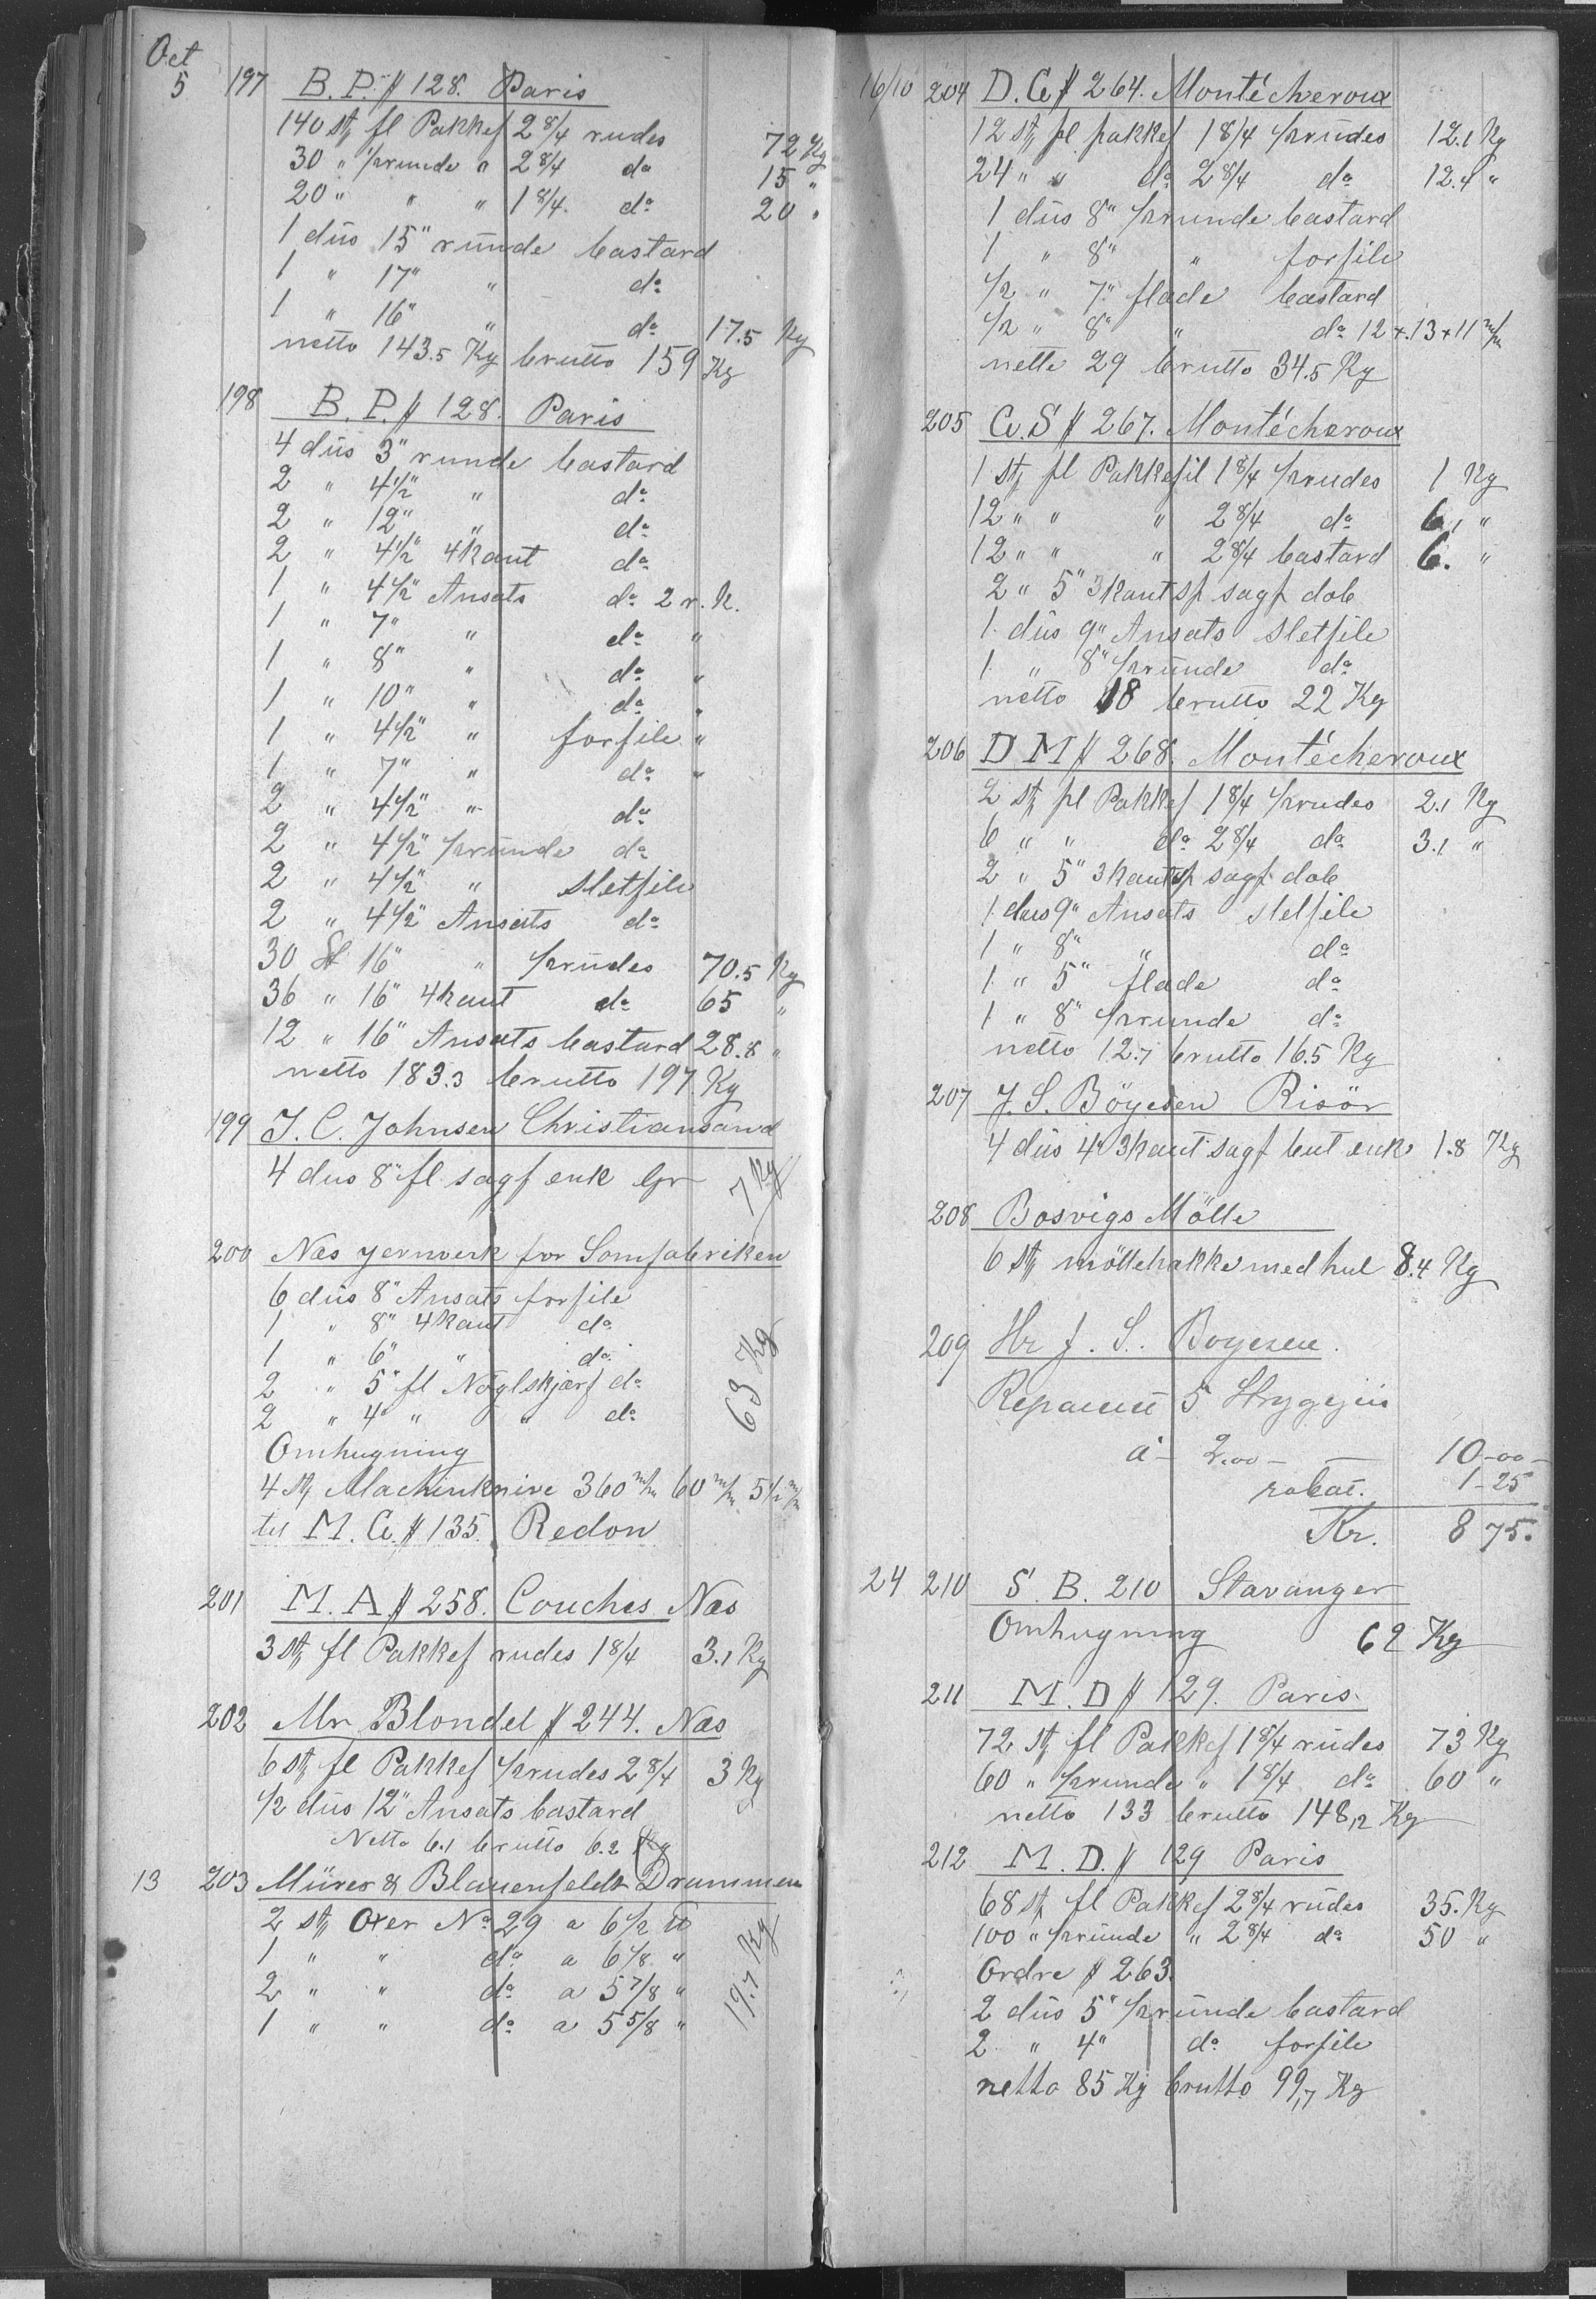 Oct
5 197 B. P. # 128. Paris
140 st fl Pakkef 2 8/4 rudes 72 Kg
30 " ½runde " 2 8/4 do 15 "
20 " " " 1 8/4 do 20 "
1 düs 15"ründe bastard
1 " 17" " do
1 " 16" " do 17.5 Kg
netto 143.5 Kg brutto 159 Kg
198 B. P. # 128. Paris
4 düs 3" runde bastard
2 " 4½" " do
2 " 12" " do
2 " 4½" 4kant do
1 " 4½" Ansats do 2 r. K.
1 " 7" " do "
1 " 8" " do "
1 " 10" " do "
1 " 4½" " forfile "
1 " 7" " do "
2 " 4½" " do
2 " 4½" ½ründe do
2 " 4½" " Sletfile
2 " 4½" Ansats do
30 St 16" " ½rüdes 70.5 Kg
36 " 16" 4kant do 65 "
12 " 16" Ansats bastard 28.8 "
netto 183.3 brutto 197. Kg
199 J. C. Johnsen Christiansand
4 dus 8" fl sagf enk Gr 7 Kg
200 Næs jernverk for Sømfabriken
6 düs 8" Ansats forfile
1 " 8" 4kant do
1 " 6" " do
2 " 5" fl Nøglskjærf do
2 " 4" " " do
63 Kg
Omhugning
4 st Machinknive 360 m/m 60 m/m 5½ m/m
til M. C. # 135. Redon
201 M. A. # 258. Couches Næs
3 st fl Pakkef rudes 1 8/4 3.1 Kg
202 Mr Blondel # 244. Næs
6 st fl Pakkef ½rudes 2 8/4 3 Kg
½ düs 12" Ansats bastard
Netto 6.1 brutto 6.2 Kg
13 203 Mürer & Blauenfeldt Drammen
2 st Oxer No 29 a 6½ ℔
1 " " do a 6 1/8 "
2 " " do a 5 7/8 "
1 " " do a 5 5/8 "
19.7 Kg
16/10 204 D. C. # 264. Montécheroux
12 st fl pakkef 1 8/4 ½rüdes 12.1 Kg
24 " " do 2 8/4 do 12.4 "
1 düs 8" ½runde bastard
1 " 8" " forfile
½ " 7" flade bastard
½ " 8" " do 12 + 13 + 11 m/m
netto 29 brutto 34.5 Kg
205 C. S # 267. Montécheroux
1 st fl Pakkefil 1 8/4 ½rudes 1 Kg
12 " " " 2 8/4 do 6.1 "
12 " " " 2 8/4 bastard 6. "
2 " 5" 3kant sp sagf dob
1 düs 9" Ansats Sletfile
1 " 8" ½runde do
netto 18 brutto 22 Kg
206 D M # 268. Montécheroux
2 st fl Pakkef 1 8/4 ½rudes 2.1 Kg
6 " " do 2 8/4 do 3.1 "
2 " 5" 3kant sp sagf dob
1 dus 9" Ansats sletfile
1 " 8" " do
1 " 5" flade do
1 " 8" ½runde do
netto 12.7 brutto 16.5 Kg
207 J. S. Böyesen Risör
4 düs 4" 3kant sagf but enk 1.8 Kg
208 Bosvigs Mölle
6 st möllehakke med hul 8.4 Kg
209 Hr J. S. Boyesen.
5 Strygejern
a 2.00 10-00-
rabat. 1-25
Kr. 8 75.
24 210 S. B. 210 Stavanger
Omhugning 62 Kg
211 M. D # 129. Paris
72 st fl Pakkef 1 8/4 rüdes 73 Kg
60 " ½runde " 1 8/4 do 60 "
netto 133 brutto 148,2 Kg
212 M. D. # 129 Paris
68 st fl Pakkef 2 8/4 rüdes 35. Kg
100 " ½ründe " 2 8/4 do 50 "
Ordre # 263.
2 düs 5" ½runde bastard
2 " 4" do forfile
netto 85 Kg brutto 99,7 Kg